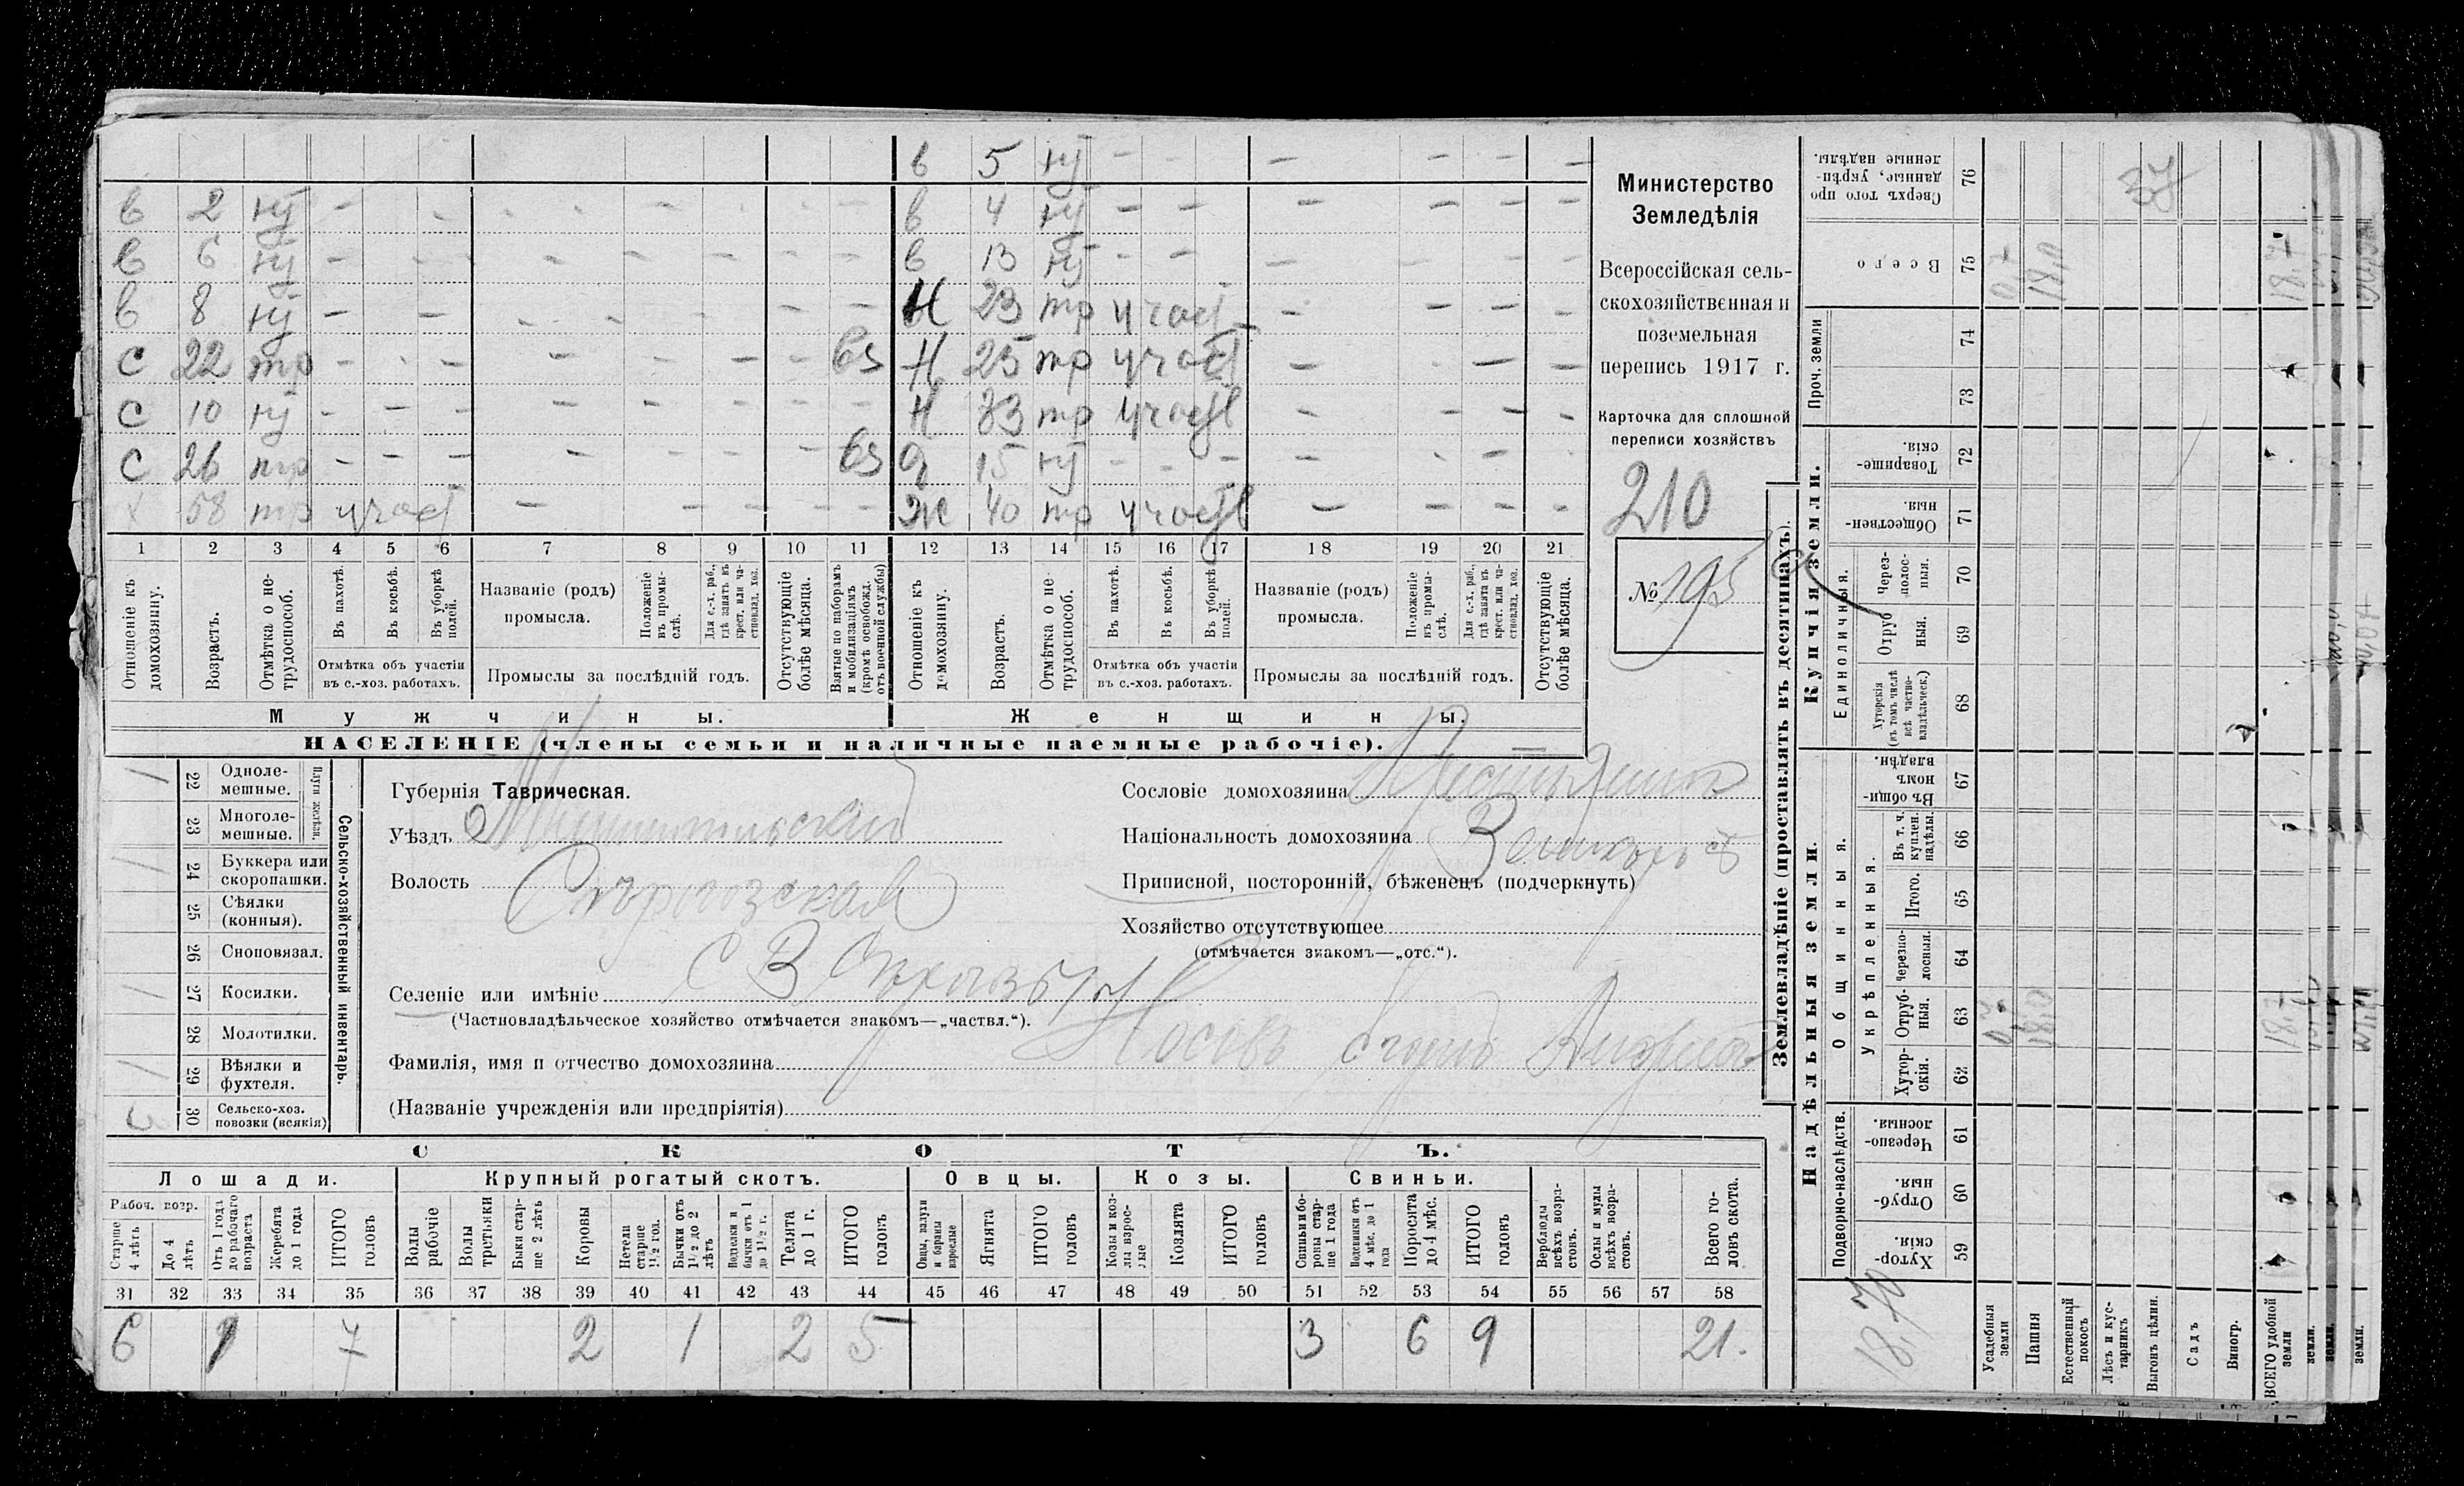 в 5 нт - - - - - -
в 2 нт - - - - - - - - в 4 нт - - - - - -
в 6 нт - - - - - - - - в 13 нт - - - - - -
в 8 нт - - - - - - - - Н 23 тр участ - - - -
С 22 тр - - - - - - - вз Н 25 тр участ - - - -
С 10 нт - - - - - - - - Н 33 тр участв - - - -
С 26 тр - - - - - - - вз д 15 нт - - - - - -
х 58 тр участ - - - - - Ж 40 тр участв - - - -
1 2 3 4 5 6 7 8 9 10 11 12 13 14 15 16 17 18 19 20 21
Отношеніе къ домохозяину.
Возрастъ.
Отмѣтка о нетрудоспособ.
Въ пахотѣ.
Въ косьбѣ.
Въ уборкѣ полей.
Отмѣтка объ участіи въ с.-хоз. работахъ.
Названіе (родъ) промысла.
Положеніе въ промыслѣ.
Для с.-х. раб., гдѣ занятъ въ крест. или частновлад. хоз.
Промыслы за послѣдній годъ.
Отсутствующіе болѣе мѣсяца.
Взятые по наборамъ и мобилизаціямъ (кромѣ освобожд. отъ военной службы)
Отношеніе къ домохозяину.
Возрастъ.
Отмѣтка о нетрудоспособ.
Въ пахотѣ.
Въ косьбѣ.
Въ уборкѣ полей.
Отмѣтка объ участіи въ с.-хоз. работахъ.
Названіе (родъ) промысла.
Положеніе въ промыслѣ.
Для с.-х. раб., гдѣ занята въ крест. или частновлад. хоз.
Промыслы за послѣдній годъ.
Отсутствующіе болѣе мѣсяца.
Мужчины. Женщины.
НАСЕЛЕНІЕ (члены семьи и наличные наемные рабочіе).
Министерство
Земледѣлія
Всероссійская сель-
скохозяйственная и
поземельная
перепись 1917 г.
Карточка для сплошной
переписи хозяйствъ
210
№ 195
Сельско-хозяйственный инвентарь.
Плуги желѣзн.
/ 22 Одноле-
мешные.
23 Многоле-
мешные.
/ 24 Буккера или
скоропашки.
25 Сѣялки
(конныя).
26 Сноповязал.
/ 27 Косилки.
28 Молотилки.
/ 29 Вѣялки и
фухтеля.
30 Сельско-хоз.
повозки (всякія)
Губернія Таврическая.
Уѣздъ Мелитопольскій
Волость
Селеніе или имѣніе С В
(Частновладѣльческое хозяйство отмѣчается знакомъ—„частвл.“).
Фамилія, имя и отчество домохозяина Носовъ
(Названіе учрежденія или предпріятія)
Сословіе домохозяина Крестьянинъ
Національность домохозяина
Приписной, посторонній, бѣженецъ (подчеркнуть)
Хозяйство отсутствующее
(отмѣчается знакомъ—„отс.“).
СКОТЪ.
Лошади. Крупный рогатый скотъ. Овцы. Козы. Свиньи.
Рабоч. возр.
Старше 4 лѣтъ
До 4 лѣтъ
Отъ 1 года до рабочаго возраста
Жеребята до 1 года
ИТОГО головъ
Волы рабочіе
Волы третьяки
Быки старше 2 лѣтъ
Коровы
Нетели старше 1½ год.
Бычки отъ 1½ до 2 лѣтъ
Телята до 1 г.
ИТОГО головъ
Овцы, валухи и бараны взрослые
Ягнята
ИТОГО головъ
Козы и козлы взрослые
Козлята
ИТОГО головъ
Свиньи боровы старше 1 года
Поросята до 4 мѣс.
ИТОГО головъ
Верблюды всѣхъ возрастовъ.
Ослы и мулы всѣхъ возрастовъ.
Всего головъ скота.
31 32 33 34 35 36 37 38 39 40 41 42 43 44 45 46 47 48 49 50 51 52 53 54 55 56 57 58
6 1 7 2 1 2 5 3 6 9 21.
Землевладѣніе (проставлять въ десятинахъ).
Надѣльныя земли. Купчія земли.
Подворно-наслѣдств.
Общинныя.
Укрѣпленныя.
Единоличныя.
Проч. земли
Хуторскія. 59
Отрубныя. 60
Черезполосныя. 61
Хуторскія. 62
Отрубныя. 63
Черезполосныя. 64
Итого. 65
Въ т. ч. куплен. надѣлы. 66
Въ общинномъ владѣн. 67
Хуторскія (въ томъ числѣ всѣ частновладѣльческ.) 68
Отрубныя. 69
Черезполосныя. 70
Общественныя. 71
Товарищескія. 72
73
74
Всего 75
Сверхъ того проданные, укрѣпленные надѣлы. 76
Усадебныя земли
Пашня
Естественный покосъ
Лѣсъ и кустарникъ
Выгонъ цѣлин.
Садъ
Виногр.
ВСЕГО удобной земли
земли.
земли.
земли.
18,70
0,7
18,0
18,7
0,7
18,0
18,7
37